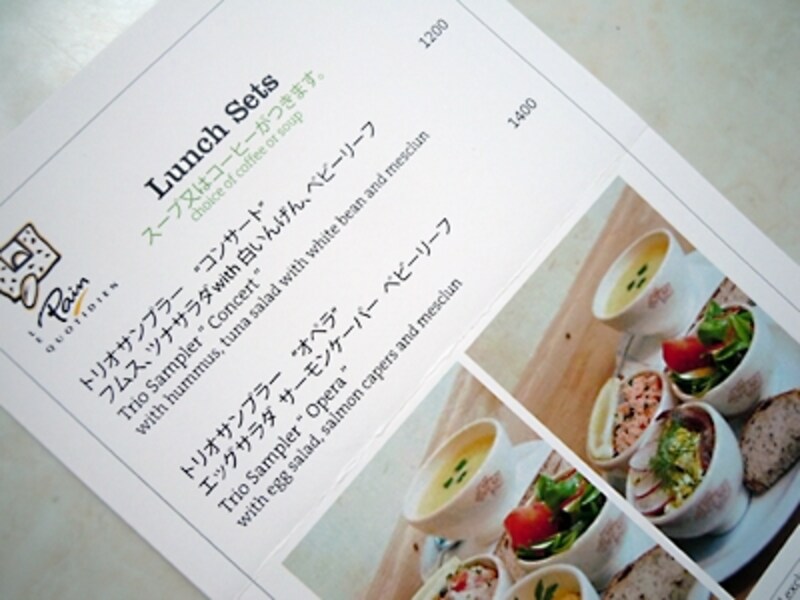 Lunch Sets
スープ又はコーヒーがつきます。
choice of coffee or soup
トリオサンプラー "コンサート"
フムス、ツナサラダwith 白いんげん、ベビーリーフ
Trio Sampler " Concert "
with hummus, tuna salad with white bean and mesclun
1200
トリオサンプラー "オペラ"
エッグサラダ サーモンケーパー ベビーリーフ
Trio Sampler " Opera "
with egg salad, salmon capers and mesclun
1400
LE
Pain
QUOTIDIEN